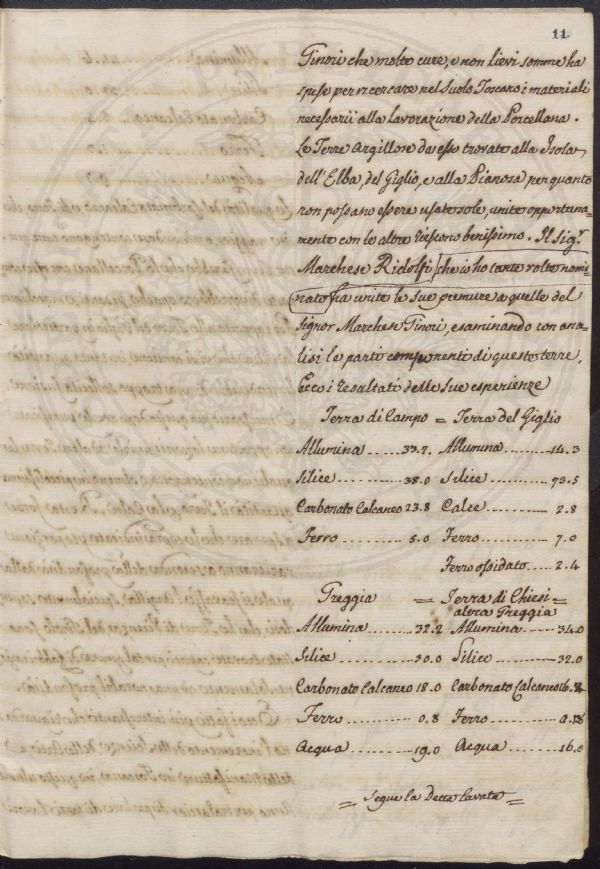 11
Ginori che molto cure, e non lievi somme ha
spese per ricercare nel Suolo Toscano i materiali
necessarii alla Lavorazione della Porcellana.
Le Terre Argillose da esso trovate alla Isola
dell'Elba, del Giglio, e alla Pianosa per quanto
non possano essere usate sole, unite opportuna-
mente con le altre riescono benissimo. Il Sigr
Marchese Ridolfi che io ho tante volte nomi
nato ha unite le sue premure a quelle del
signor Marchese Ginori, esaminando con ana-
lisi le parti componenti di queste terre.
Ecco i resultati delle sue esperienze
Terra di Campo = Terra del Giglio
Allumina ...... 33.7. Allumina ......... 14.3
Silice ............ 38.0 Silice ............ 73.5
Carbonato Calcaneo 23.8 Calce ............ 2.8
Ferro ............ 5.0 Ferro ............ 7.0
Ferro ossidato ...... 2.4
Greggia = Terra di Chiesi =
altra Greggia
Allumina ......... 32.2 Allumina ...... 34.0
Silice ............ 30.0 Silice ............ 32.0
Carbonato Calcaneo 18.0 Carbonato Calcaneo 16.
Ferro ............ 0.8 Ferro ............
Acqua ............ 19.0 Acqua ............ 16.0
= Segue la Detta lavata =